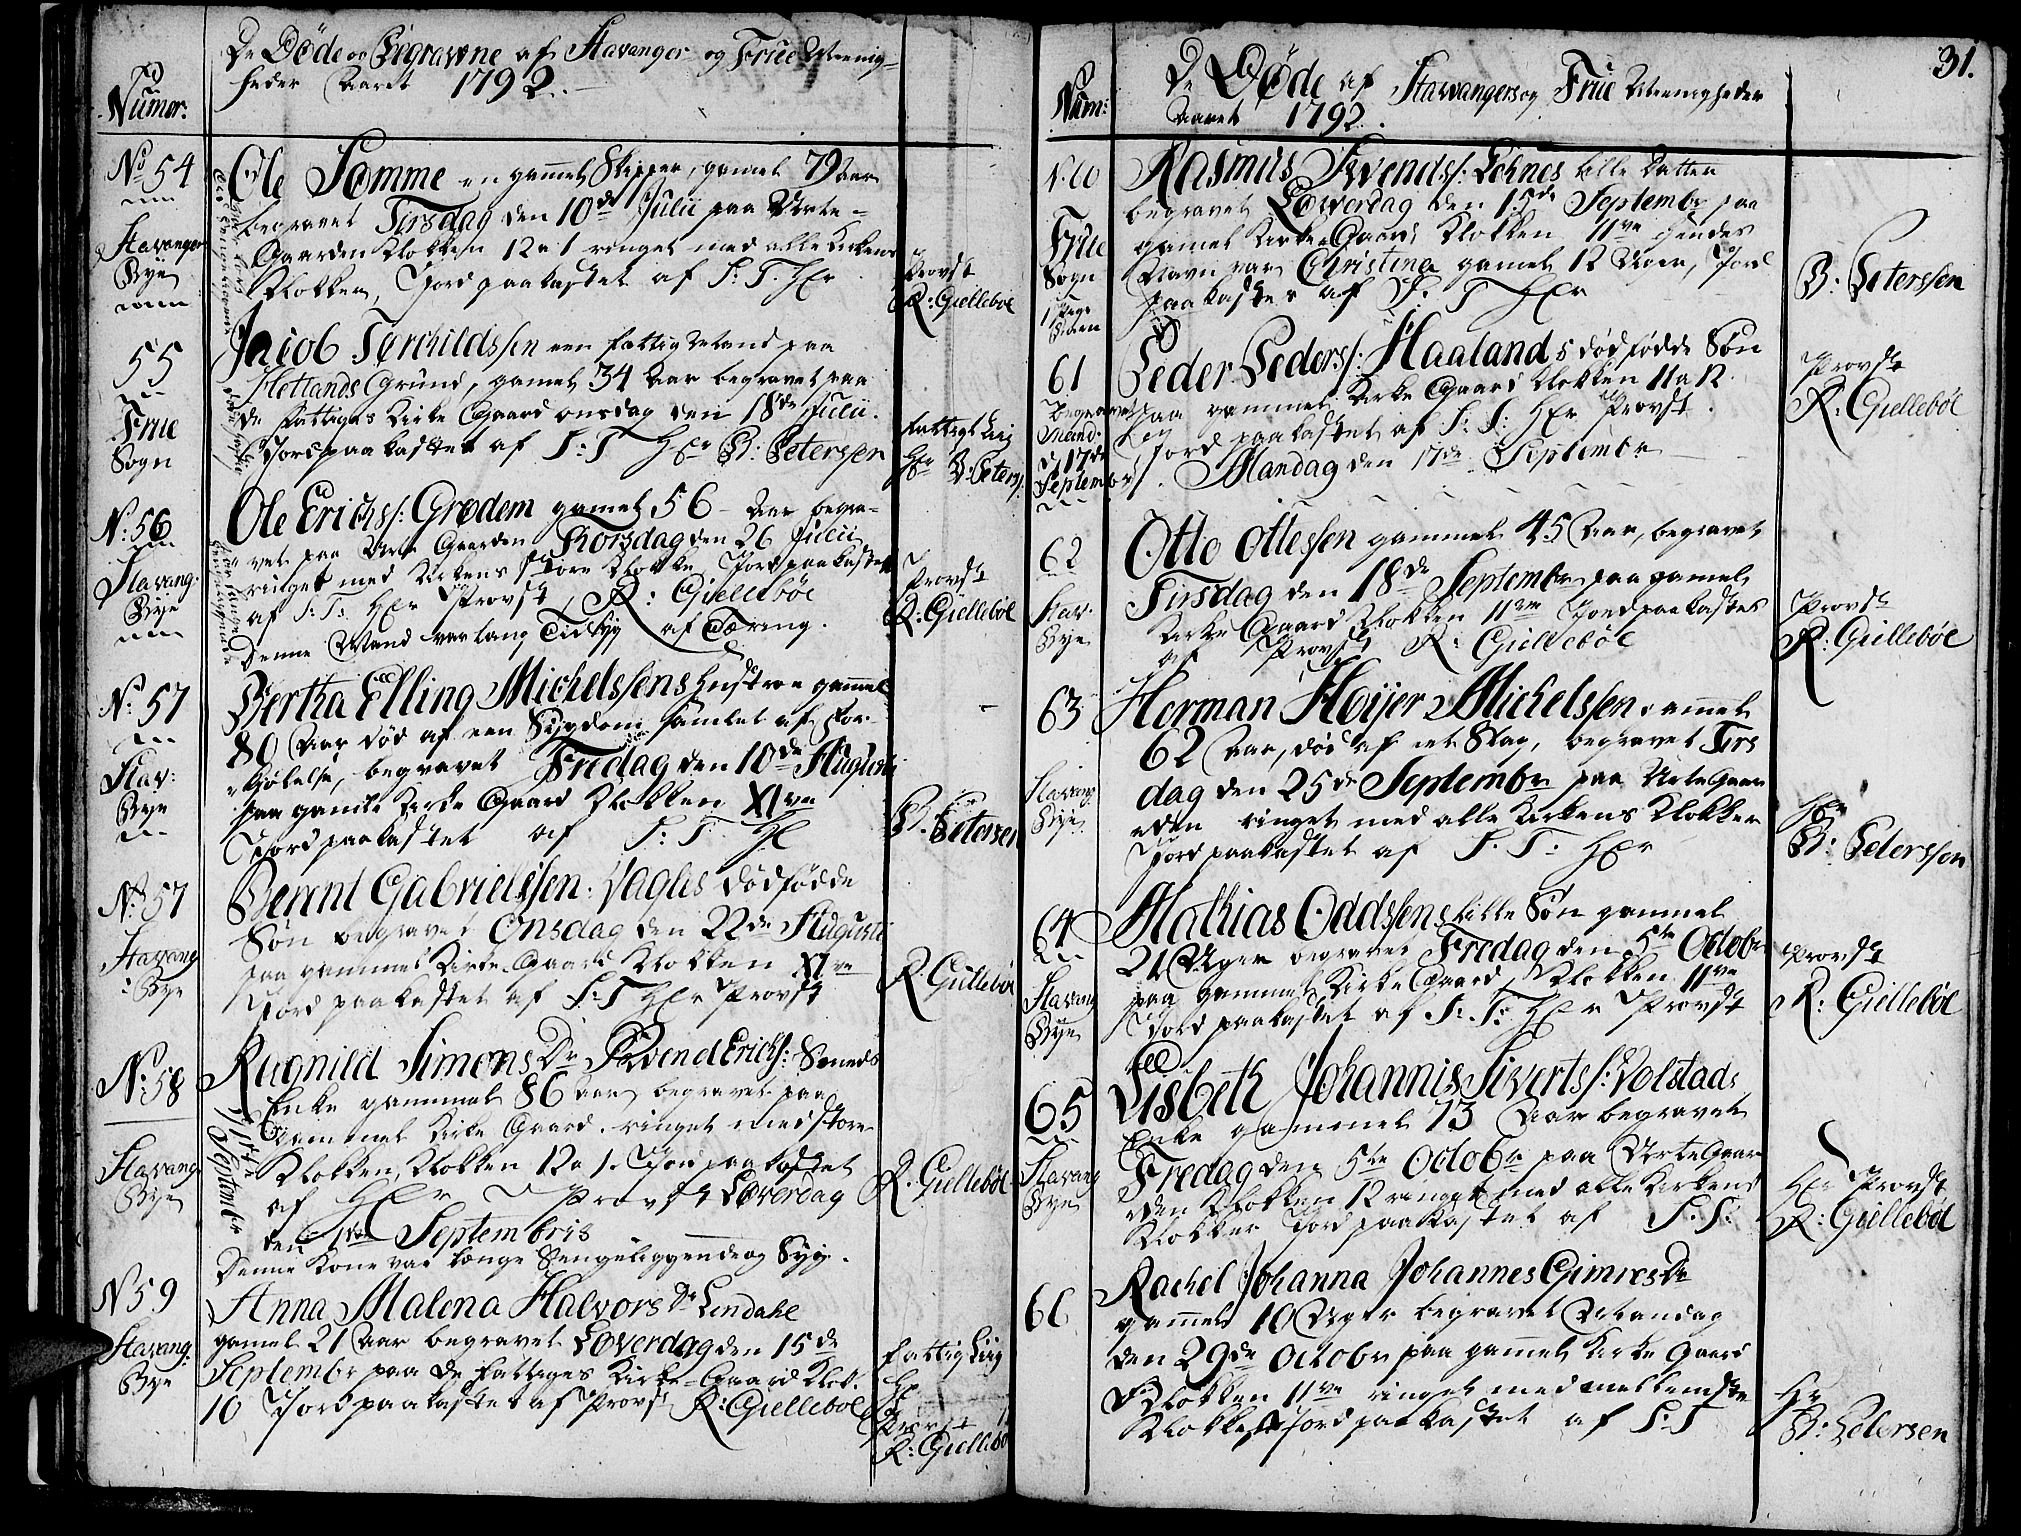 De Døde og Begravne af Stavanger og Frue Meenig-
heder Aaret 1792.
Numer:
No 54
Stavanger
Bye
Ole Somme en gamel Skipper, gamel 79 Aar
begravet Tirsdag den 10de Julii paa Urte-
Gaarden Klokken 12 a 1 ringet med alle Kirkens
Klokker, Jord paakastet af S: T. Hr
Provst
R: Gielleböl
55
Frue
Sogn
Jacob Torchildssen een fattig Mand paa
Hetlands Grund, gamel 34 Aar begravet paa
de Fattiges Kirke Gaard onsdag den 18de Julii.
Jord paakastet af S: T Hr B: Petersen
Fattigt Liig
Hr B: Peters:
N: 56
Stavang:
Bye
Ole Erichs: Grødem gamel 56 Aar begra-
vet paa Urte Gaarden Thorsdag den 26 Julii
ringet med Kirkens store Klokke Jord paakastet
af S: T: Hr Provst R: Gielleböl
Denne Mand var lang Tid syg af Tæring.
Provst
R: Gielleböl
N: 57
Stav:
Bye
Bertha Elling Michelssens Hustroe gamel
80 Aar død af een Sygdom samlet af For-
kjølelse, begravet Fredag den 10de Augusti
paa gamle Kirke Gaard Klokken XIve
Jord paakastet af S: T: Hr
B. Petersen
No 57
Stavang
Bye
Berent Gabrielssen Vagles dødfødde
Søn begravet Onsdag den 22de Augusti
paa gammel Kirke-Gaard Klokken XIve
Jord paakastet af S: T Hr Provst
R Gielleböl
N: 58
Stavang
Bye
Ragnild Simons Dr Svend Erichs:
Enke gammel 86 Aar begravet paa
gammel Kirke Gaard. ringet med store
Klokken, Klokken 12 a 1. Jord paakastet
af Hr Provst Løverdag
den 1ste Septembris
Denne Kone var længe Sengeliggende og Syg.
R. Gielleböl
N 59
Stavang:
Bye
Anna Malena Halvors Dr Lendahl
gamel 21 Aar begravet Løverdag den 15de
Septembr paa de Fattiges Kirke-Gaard Klok.
10 Jord paakastet af Provst R: Gielleböl
Fattig Liig
Hr
Provst
R: Gielleböl
31.
De Døde af Stawangers og Frue Meenigheder
Aaret 1792.
Num:
Frue
Sogn
Rasmus Svends: lille Datter
begravet Løverdag den 15de Septembr paa
gamel Kirke Gaard Klokken 11ve hendes
Navn var Christina gamel 12 Uger, Jord
paakastes af S: T Hr
B: Petersen
61
Begravet
Mand:
d: 17de
Septembr
Peder Peders: Haalands dødfødde Søn
paa gammel Kirke Gaard Klokken 11 a 12
Jord paakastet af S: T: Hr Provst.
Mandag den 17de Septembr
Provst
R: Gielleböl
62
Stav:
Bye
Otto Ottessen gammel 45 Aar, begravet
Tirsdag den 18de Septembr paa gamel
Kirke Gaard Klokken 11ve Jord paakastes
af Provst R: Gielleböl
Provst
R: Gielleböl
63
Stavang
Bye
Herman Høijer Michelssen gammel
62 Aar, død af et Slag, begravet Tirs
dag den 25de Septembr paa Urte Gaar
den ringet med alle Kirkens Klokker
Jord paakastet af S. T: Hr
Hr
B: Petersen
64
Stavang
Bye
Mathias Oddssens lille Søn gammel
21 Uger begravet Fredag den 5te Octobr
paa gammel Kirke Gaard Klokken 11ve
Jord paakastet af S: T: Hr Provst
Provst
R: Gielleböl
65
Stavang
Bye
Lisbeth Johannis Siverts: Volstads
Enke gammel 73 Aar begravet
Fredag den 5te Octobr paa Urte Gaar
den Klokken 12 ringet med alle Kirkens
Klokker Jord paakastet af S. T.
Hr Provst
R: Gielleböl
66
Rachel Johanna Johannes Gimres Dr
gamel 10 Uger begravet Mandag
den 29de Octobr paa gamel Kirke Gaard
Klokken 11ve ringet med mellemste
Klokke Jord paakastet af S: T
Hr
B: Petersen